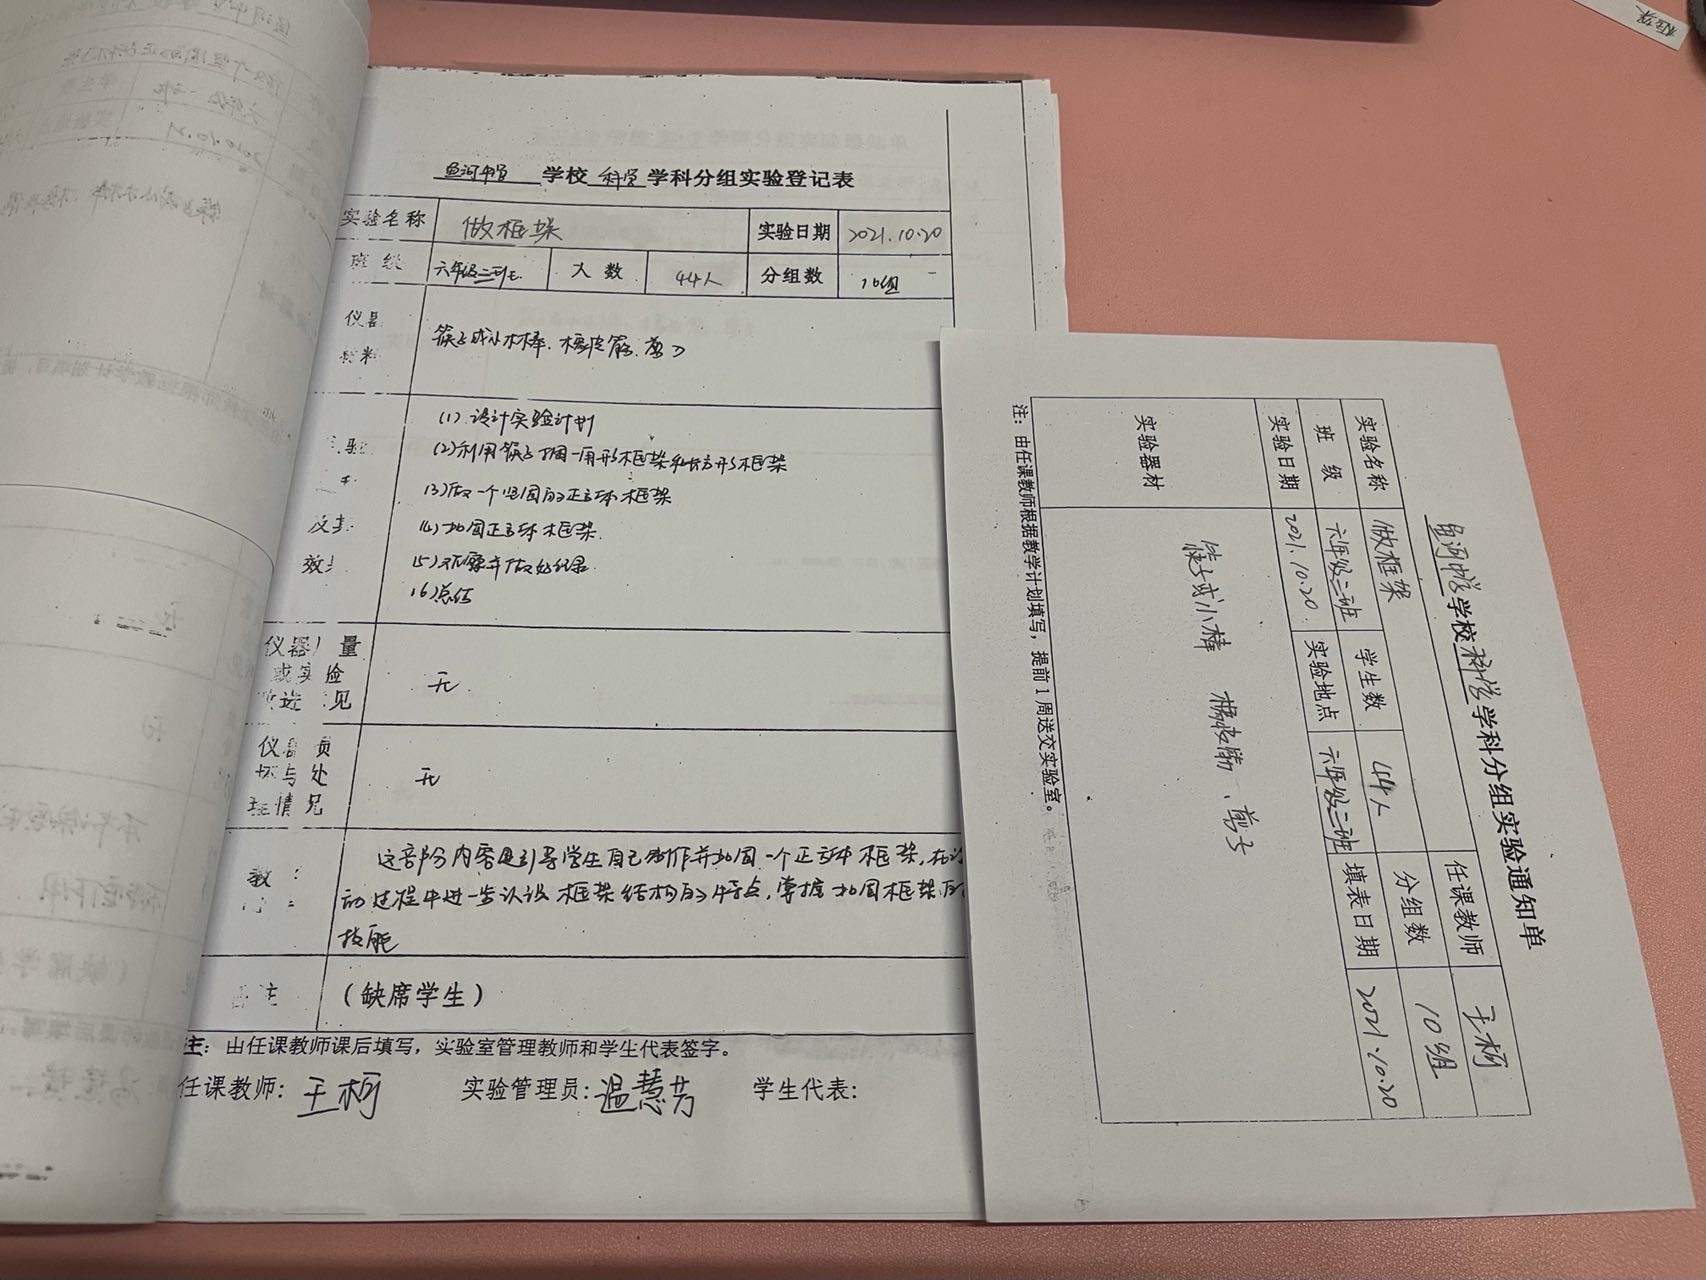 鱼河中学 学校 科学 学科分组实验登记表
实验名称 做框架 实验日期 2021.10.20
班级 六年级二班 人数 44人 分组数 10组
仪器 材料 筷子或小木棒、橡皮筋、剪刀
(1)设计实验计划
(2)利用筷子做一角形框架和方形框架
(3)做一个坚固的正方体框架
(4)加固正方体框架
(5)观察并做好记录
(6)总结
仪器 量
或实验
改进 见
无
仪器 损
坏与处
理情况
无
这部分内容是引导学生自己制作并加固一个正方体框架,在
动过程中进一步认识框架结构的特点,掌握加固框架的
技能
备注 (缺席学生)
注:由任课教师课后填写,实验室管理教师和学生代表签字。
任课教师: 王柯 实验管理员: 温慧芳 学生代表:
鱼河中学 学校 科学 学科分组实验通知单
任课教师 王柯
实验名称 做框架 学生数 44人 分组数 10组
班级 六年级二班 实验地点 六年级二班 填表日期 2021.10.20
实验日期 2021.10.20
实验器材 筷子或小棒 橡皮筋、剪子
注:由任课教师根据教学计划填写,提前1周送交实验室。
框架